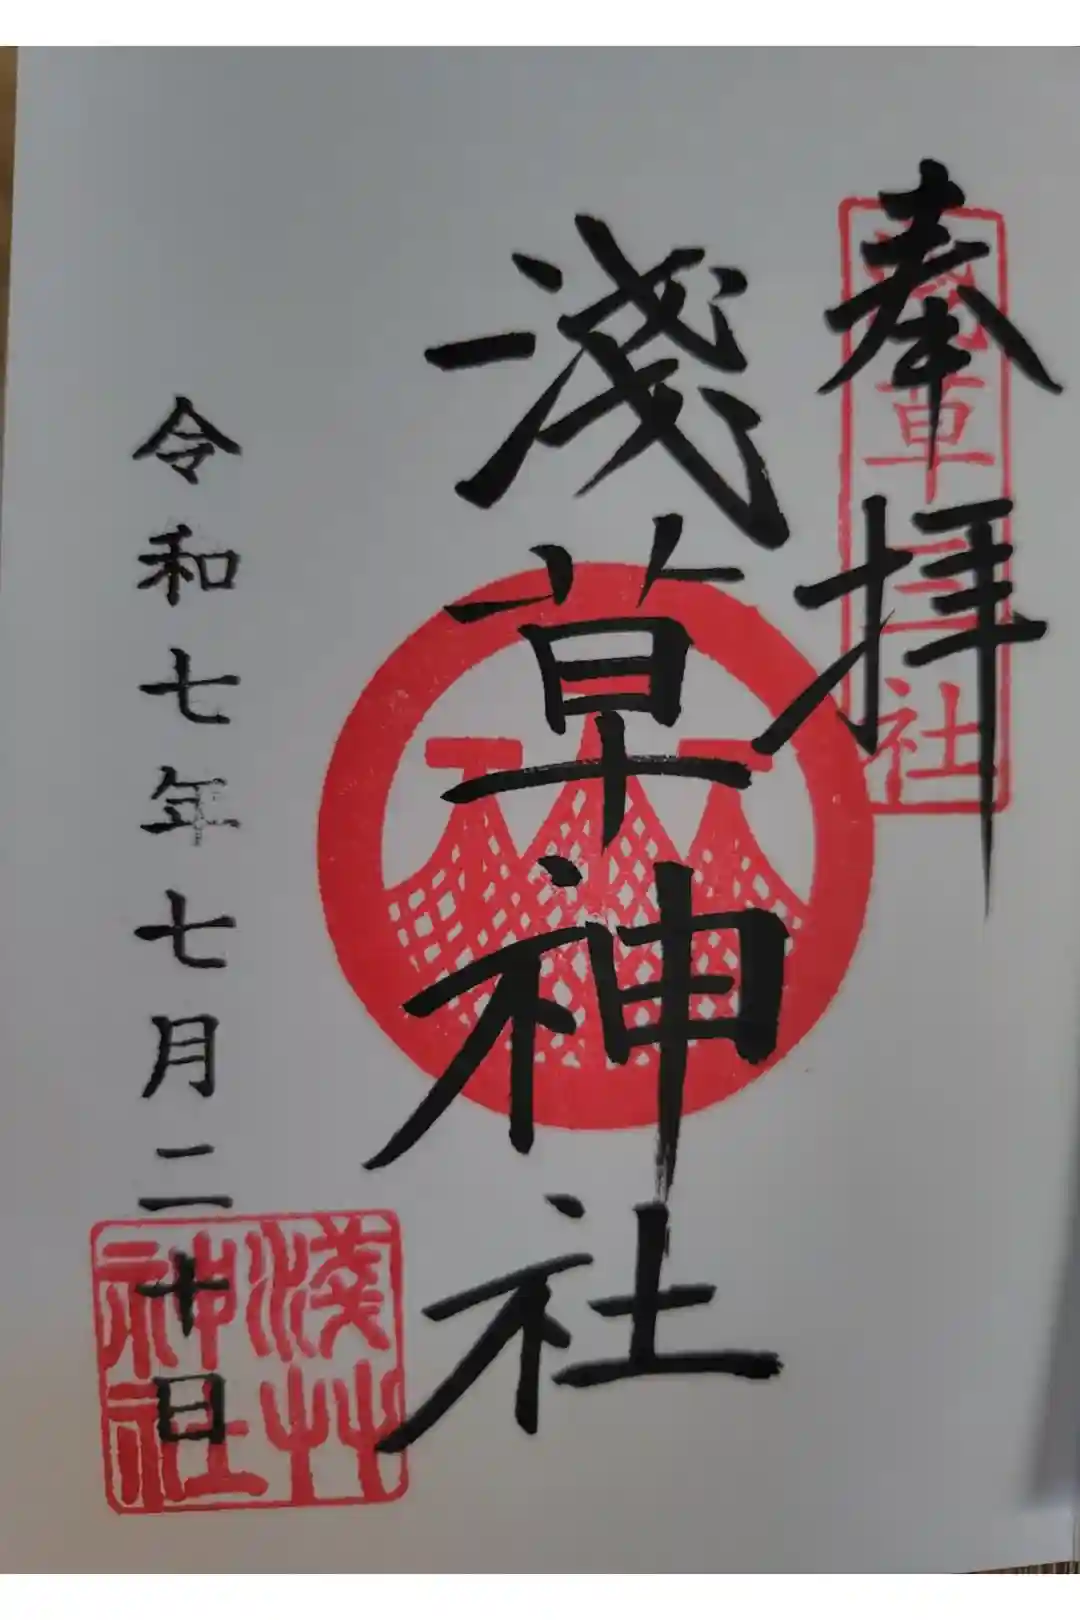 奉拝
浅草三社
淺草神社
令和七年七月二十日
淺艸神社